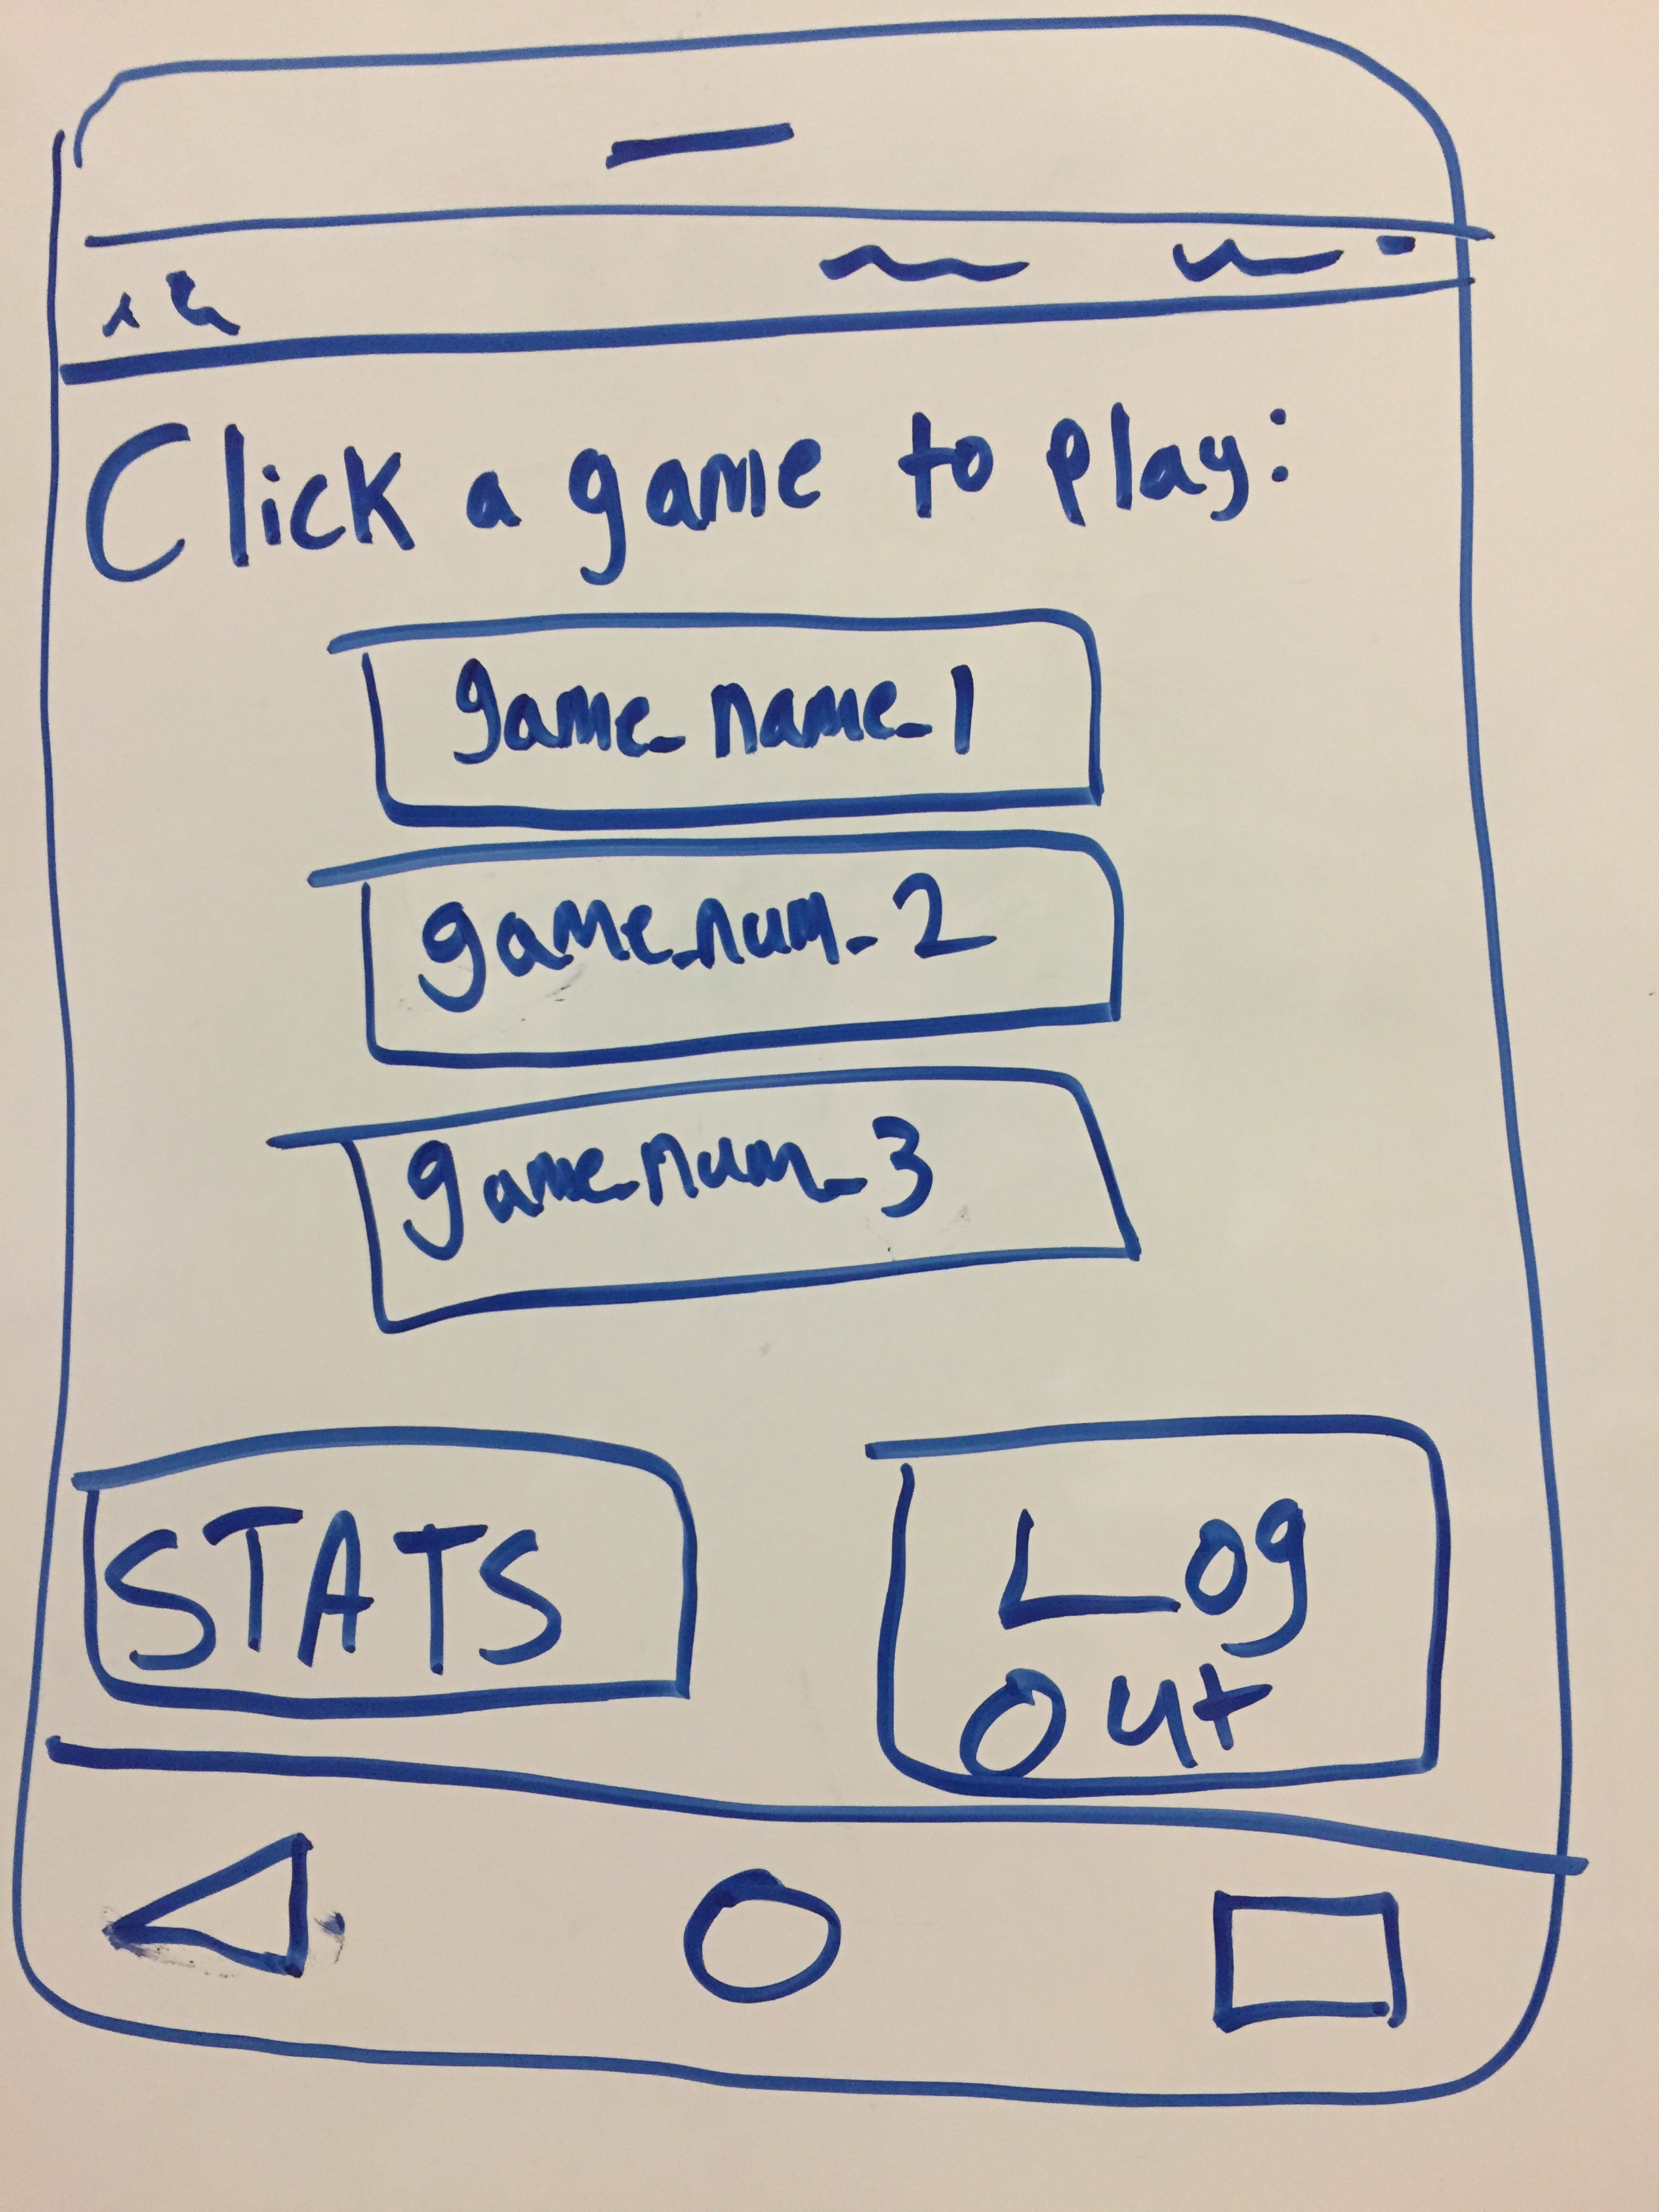 Click a game to play:
game_name_1
game_num_2
game_num_3
STATS
Log
Out